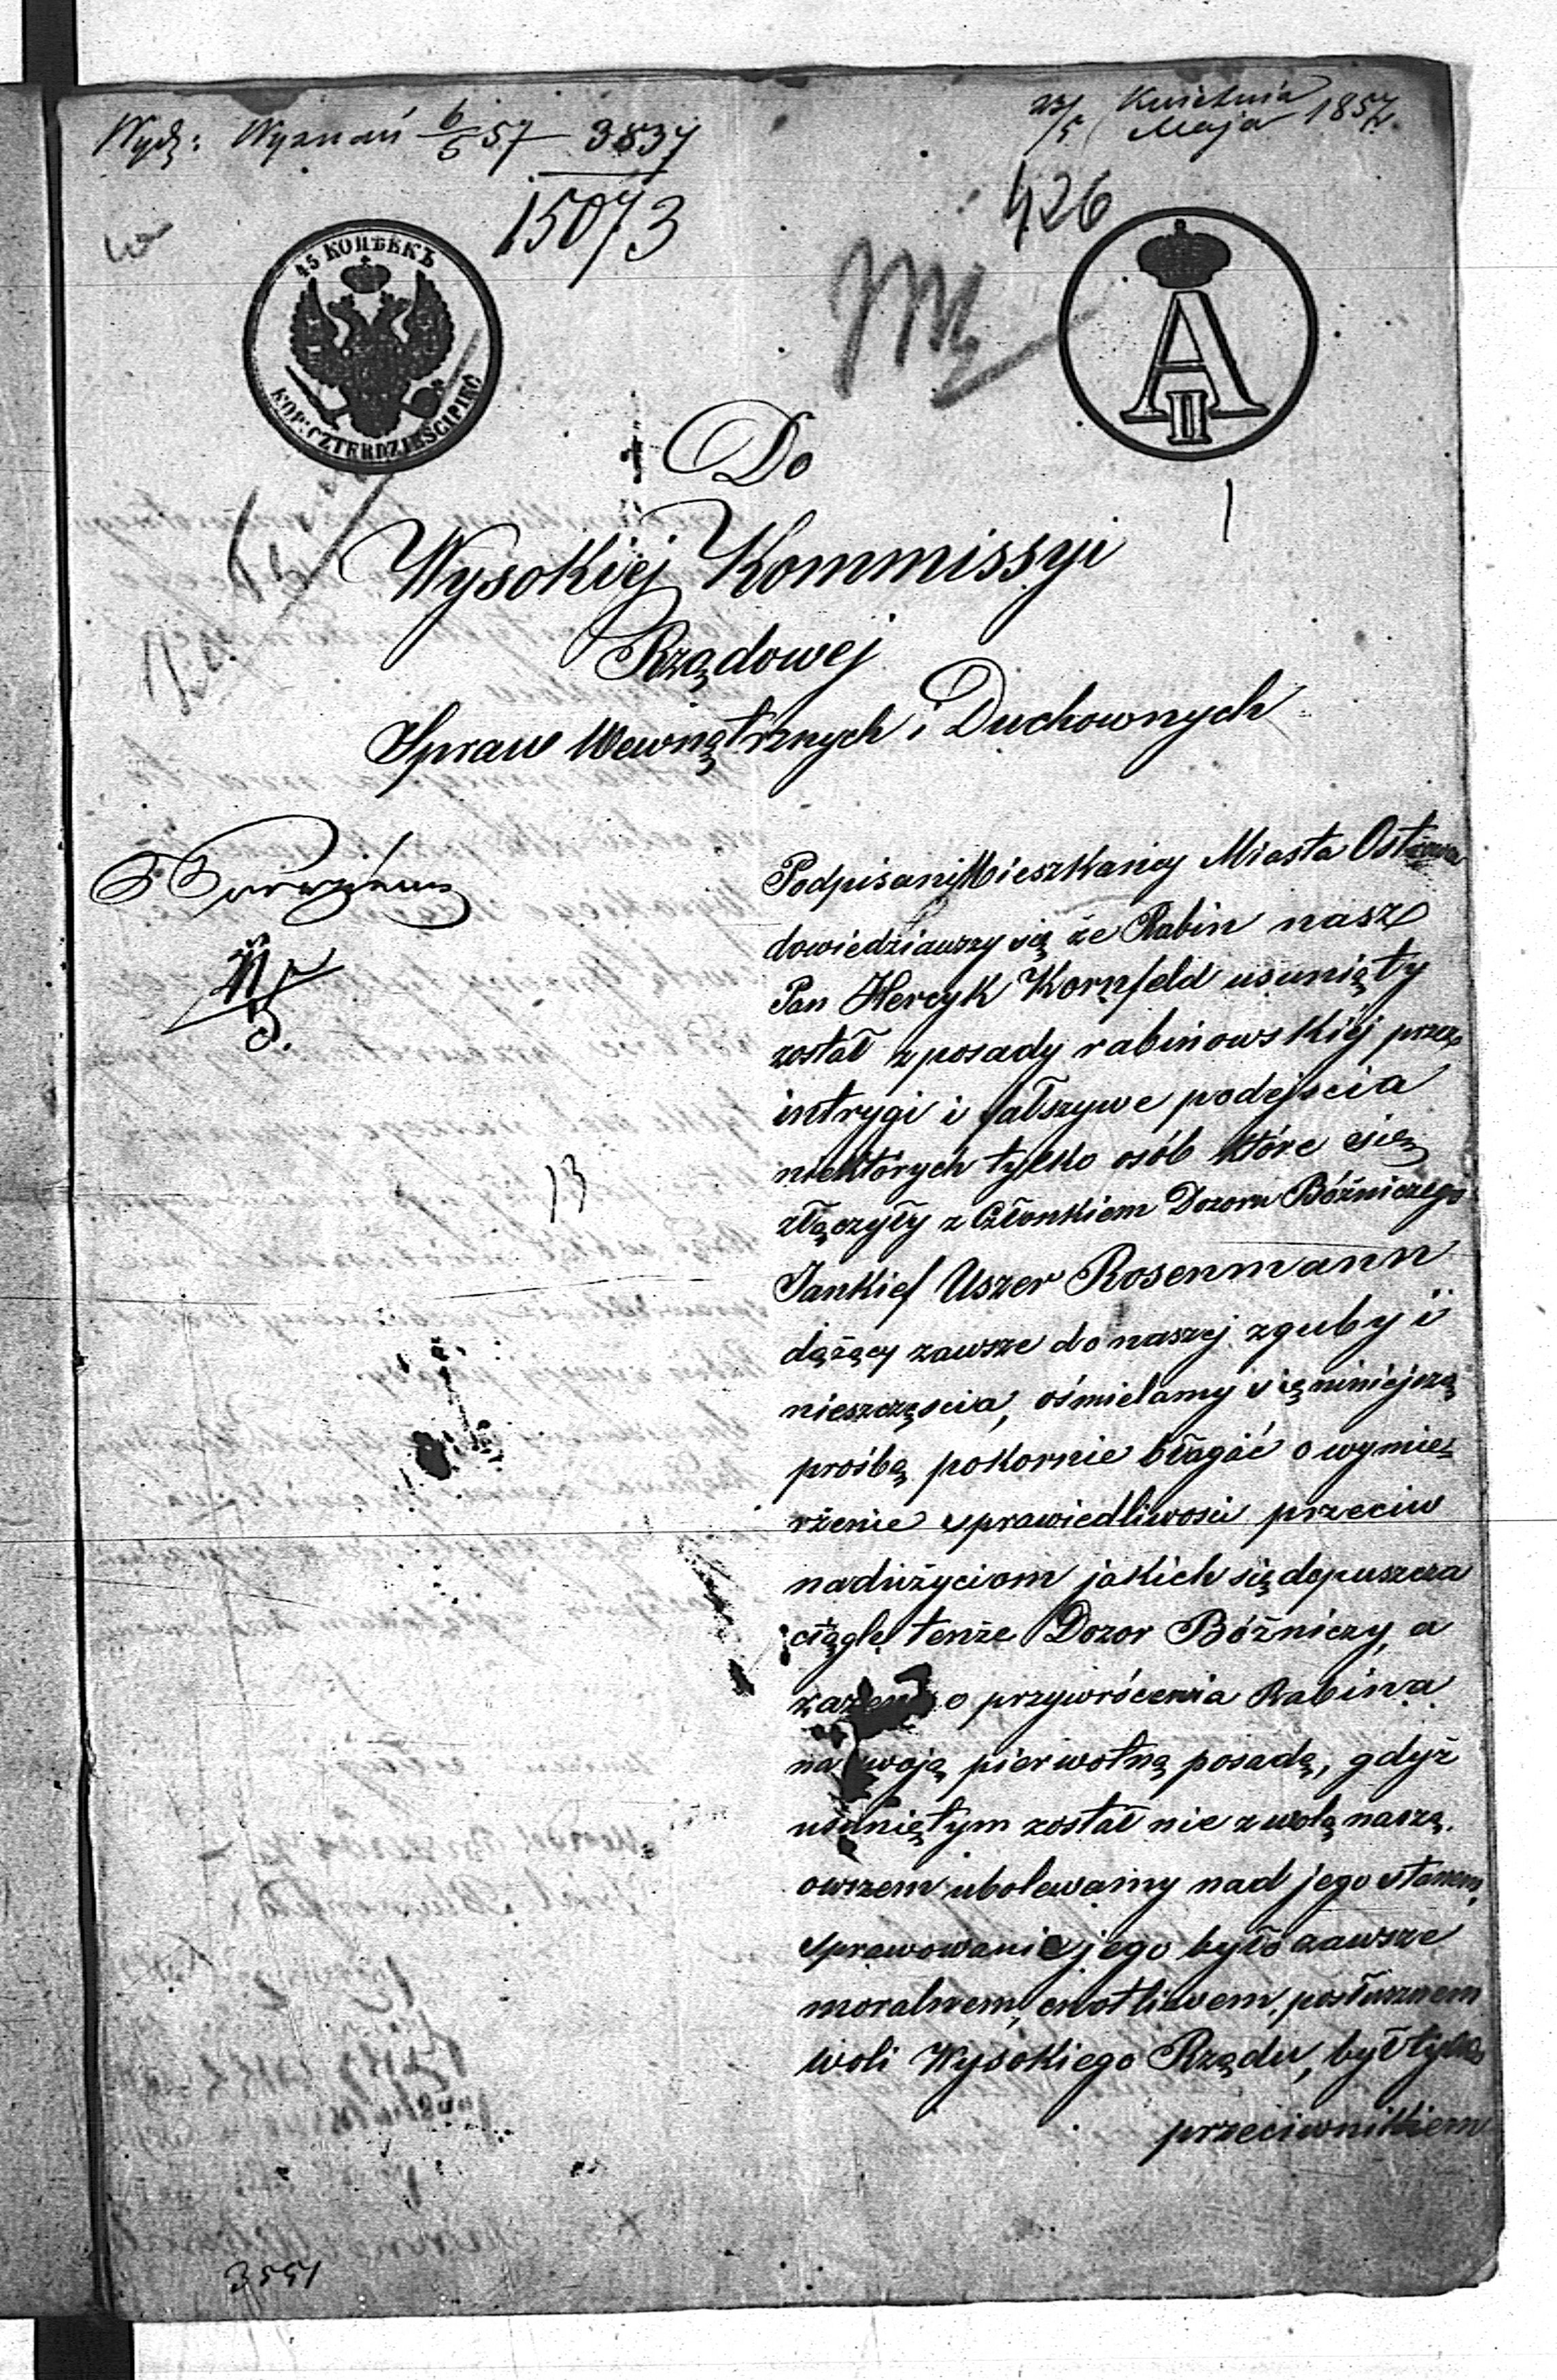 23/5 Kwietnia Maja 1857.
Wydz: Wyznań 6/6 57 3837
15073
426
45 КОПѢЕКЪ
KOP: CZTERDZIEŚCI PIĘĆ
A II
1
Do
Wysokiej Kommissyi
Rządowej
Spraw Wewnątrznych i Duchownych
Podpisani Mieszkańcy Miasta Ostrowa
dowiedziawszy się że Rabin nasz
Pan Hercyk Kornfeld usunięty
został z posady rabinowskiéj przez
intrygi i fałszywe podejscia
niektórych tylko osób które się
złączyły z Członkiem Dozoru Bóźniczego
Jankief Uszer Rosenmann
dążący zawsze do naszej zguby i
nieszczęscia, ośmielamy się niniejszą
prośbą pokornie błagać o wymie-
rżenie sprawiedliwosci przeciw
nadużyciom jakich się dopuszcza
ciągle tenże Dozor Bóźniczy, a
razem o przywrócenia Rabina
na swoją pierwotną posadę, gdyż
usuniętym został nie z wolą naszą.
owszem ubolewamy nad jego stanem,
sprawowanie jego było zawsze
moralnem, cnotliwem, posłusznem
woli Wysokiego Rządu, był tylko
przeciwnikiem
13
3551